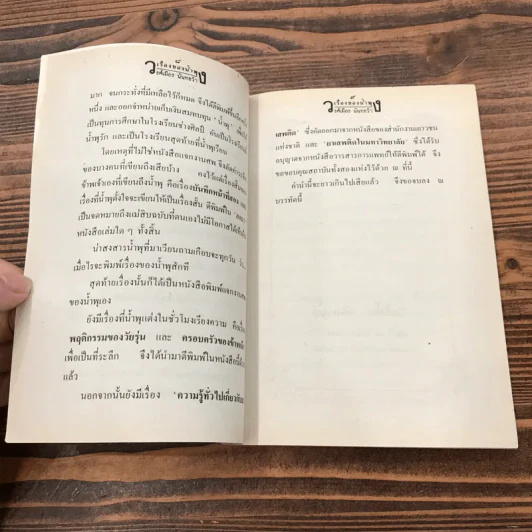 เรื่องของน้ำพุ
มาก จนกระทั่งที่มีเหลือไว้ก็หมด จึงได้ตีพิมพ์ขึ้นอีก
หนึ่ง และออกจำหน่ายเก็บเงินสมทบทุน "น้ำพุ" เพื่อ
เป็นทุนการศึกษาในโรงเรียนช่างศิลป์ อันเป็นโรงเรียน
น้ำพุรัก และเป็นโรงเรียนสุดท้ายที่น้ำพุเรียน
โดยเหตุที่ไม่ใช่หนังสือแจกงานศพ จึงตัด
ของบางคนที่เขียนถึงเสียบ้าง คงไว้แต่เรื่อง
ข้าพเจ้าเองที่เขียนถึงน้ำพุ คือเรื่องบันทึกหน้าที่สอง และ
เรื่องที่น้ำพุตั้งใจจะเขียนให้เป็นเรื่องสั้น ตีพิมพ์ใน
เป็นจดหมายถึงแม่สิบฉบับที่ตนเองไม่มีโอกาสได้
หนังสือเล่มใด ๆ ทั้งสิ้น
น่าสงสารน้ำพุที่มาเวียนถามเกือบจะทุกวัน
เมื่อไรจะพิมพ์เรื่องของน้ำพุสักที
สุดท้ายเรื่องนั้นก็ได้เป็นหนังสือพิมพ์แจกงานศพ
ของน้ำพุเอง
ยังมีเรื่องที่น้ำพุแต่งในชั่วโมงเรียงความ คือ
พฤติกรรมของวัยรุ่น และ ครอบครัวของข้าพเจ้า
เพื่อเป็นที่ระลึก จึงได้นำมาตีพิมพ์ในหนังสือนี้
แล้ว
นอกจากนั้นยังมีเรื่อง "ความรู้ทั่วไปเกี่ยวกับ
เรื่องของน้ำพุ
เสพติด" ซึ่งคัดออกมาจากหนังสือของสำนักงานเยาวชน
แห่งชาติ และ "ยาเสพติดในมหาวิทยาลัย" ซึ่งได้รับ
อนุญาตจากหนังสือวารสารการแพทย์ให้ตีพิมพ์ได้ จึง
ขอขอบคุณสถาบันทั้งสองแห่งไว้ด้วย ณ ที่นี้
คำนำนี้จะยาวเกินไปเสียแล้ว จึงขอจบลง ณ
บรรทัดนี้